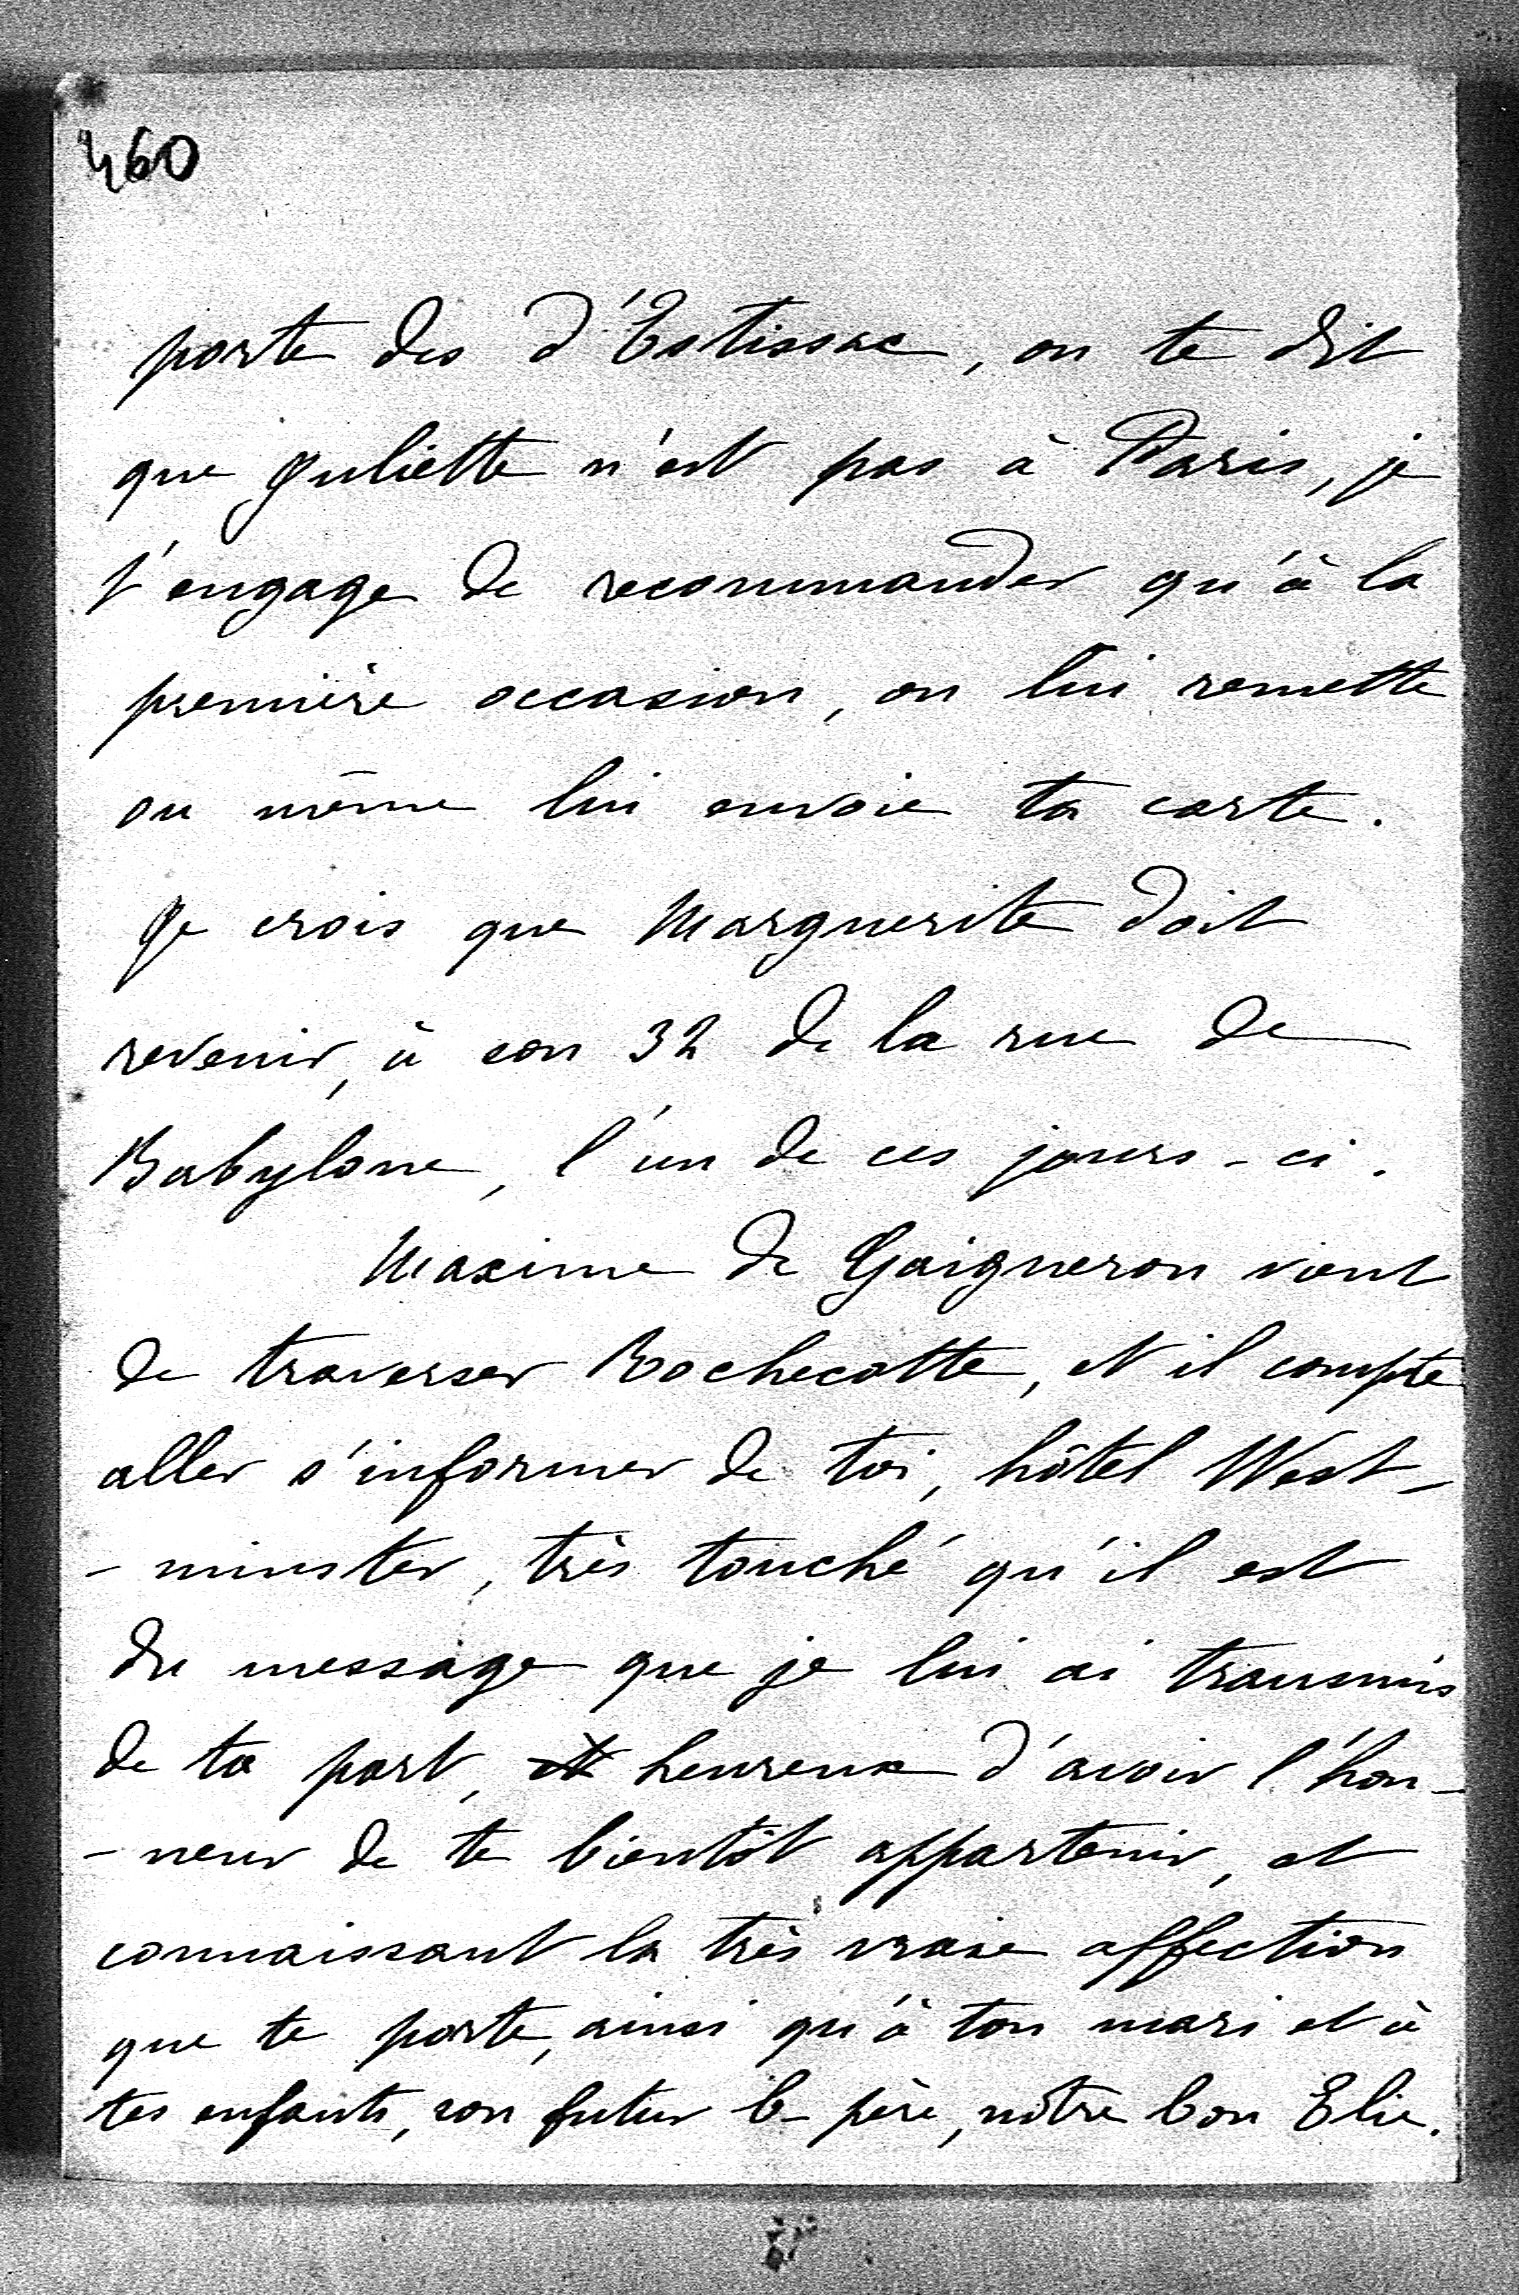 460
porte des d'Estissac, on te dit
que Juliette n'est pas à Paris, je
t'engage de recommander qu'à la
première occasion, on lui remette
ou même lui envoie ta carte.
Je crois que Marguerite doit
revenir, à son 32 de la rue de
Babylone, l'un de ces jours-ci.
Maxime de Gaigneron vient
de traverser Rochecotte, et il compte
aller s'informer de toi, hôtel West-
-minster, très touché qu'il est
du message que je lui ai transmis
de ta part, et heureux d'avoir l'hon-
-neur de te bientôt appartenir, et
connaissant la très vraie affection
que te porte, ainsi qu'à ton mari et à
tes enfants, son futur b-père, nôtre bon Elie.